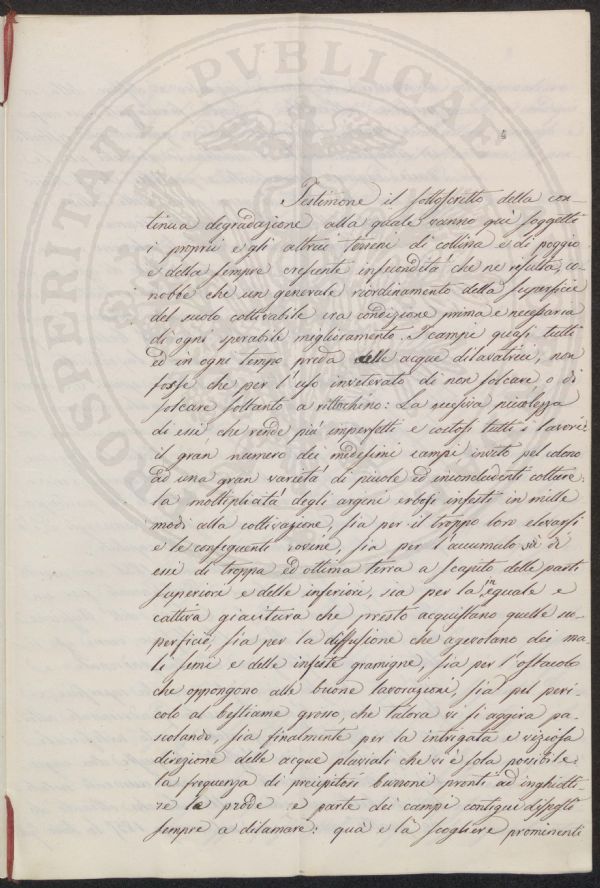 PROSPERITATI PVBLICAE
Testimone il sottoscritto della con-
tinua degradazione alla quale vanno quì soggetti
i proprii e gli altrui terreni di collina e di poggio
e della sempre crescente infecondità che ne risulta, co-
nobbe che un generale riordinamento della superficie
del suolo coltivabile era condizione prima e necessaria
di ogni sperabile miglioramento. I campi quasi tutti
ed in ogni tempo preda delle acque dilavatrici, non
fosse che per l'uso inveterato di non solcare o di
solcare soltanto a rittochino: La recisiva piccolezza
di essi, che rende più imperfetti e costosi tutti i lavori:
il gran numero dei medesimi campi invito pel colono
ad una gran varietà di piccole ed inconcludenti colture:
la moltiplicità degli argini erbosi infesti in mille
modi alla coltivazione, sia per il troppo loro elevarsi
e le conseguenti rovine, sia per l'accumulo su di
essi di troppa ed ottima terra a scapito delle parti
superiori e delle inferiori, sia per la ineguale e
cattiva giacitura che presto acquistano quelle su-
perficie, sia per la diffusione che agevolano dei ma-
li semi e delle infeste gramigne, sia per l'ostacolo
che oppongono alle buone lavorazioni, sia pel peri-
colo al bestiame grosso, che talora vi si aggira pa-
scolando, sia finalmente per la intrigata e viziosa
direzione delle acque pluviali che vi è sola possibile:
la frequenza di precipitosi burroni pronti ad inghiotti-
re le prode e parte dei campi contigui disposti
sempre a dilamare: quà e là scogliere prominenti